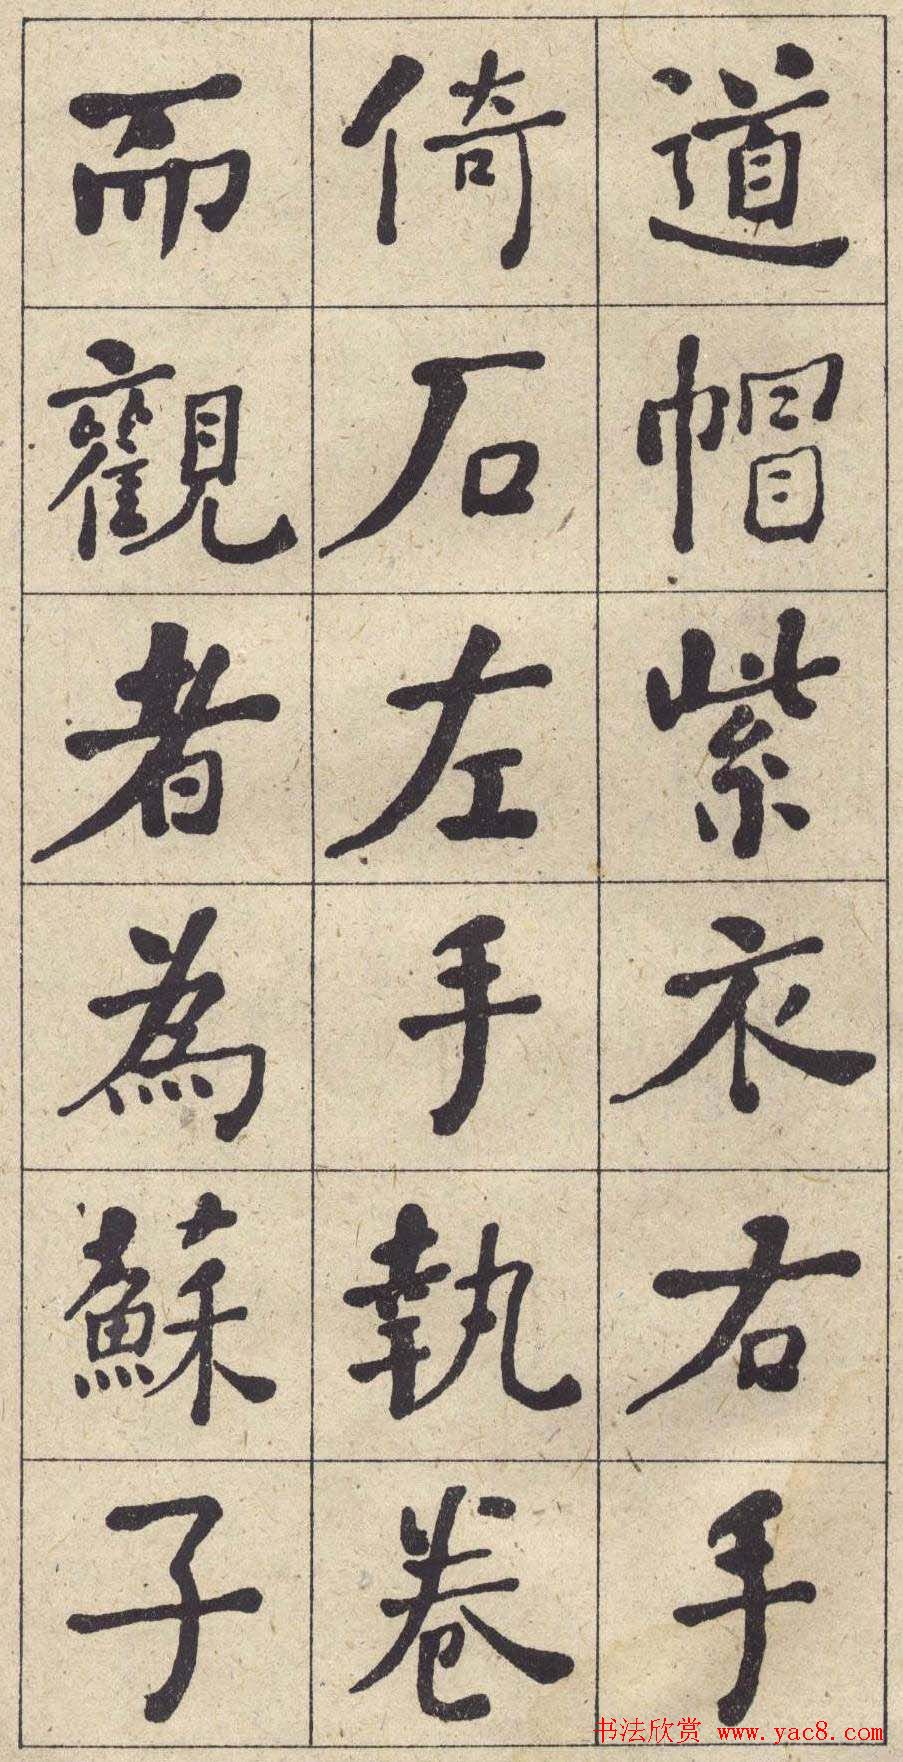 道帽紫衣右手
倚石左手執卷
而觀者為蘇子
书法欣赏 www.yac8.com